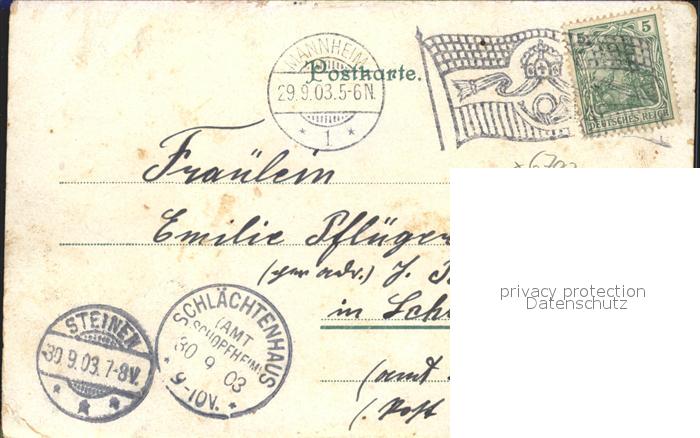 MANNHEIM
29.9.03.5-6N.
* 1 *
Postkarte.
5 5
DEUTSCHES REICH
Fräulein
Emilie Pflüger
(per adr.) J.
in
STEINEN
30.9.03.7-8V.
SCHLÄCHTENHAUS
(AMT
SCHOPFHEIM)
30 9 03
9-10V.
(amt
(Post
privacy protection
Datenschutz